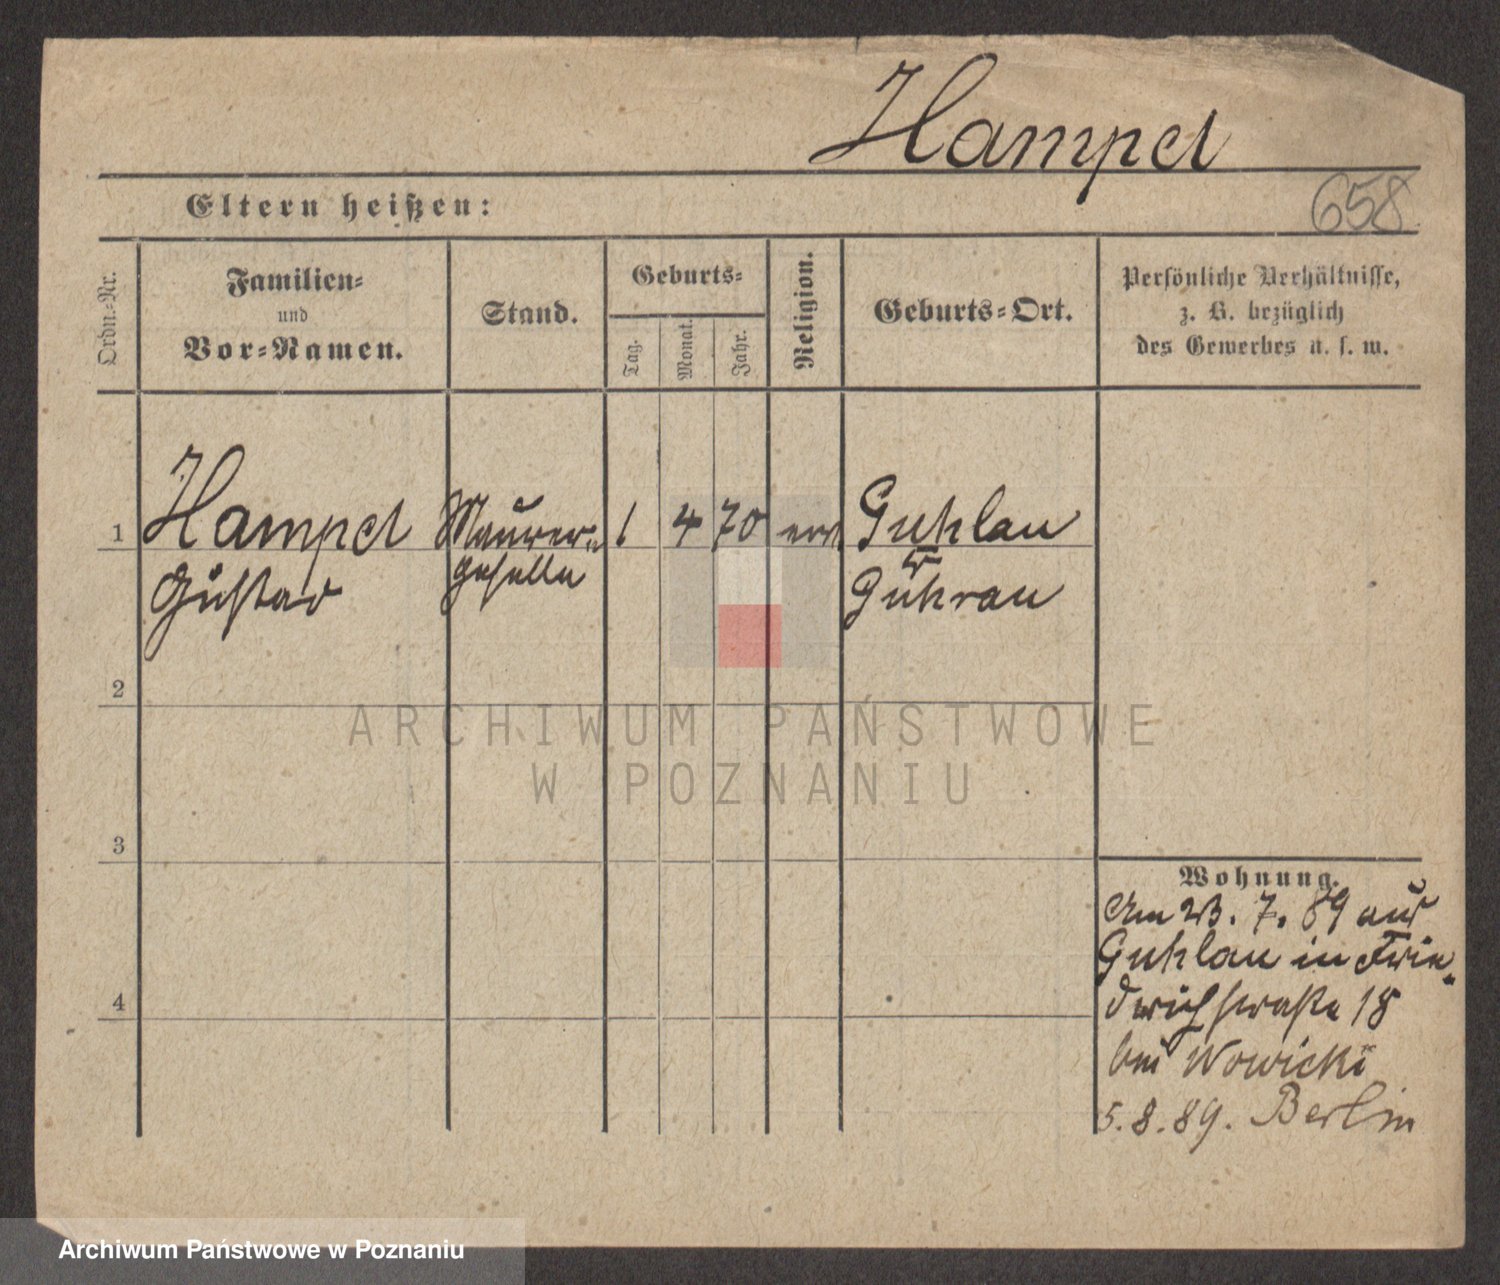 Hampel
658
Eltern heißen:
Ordn.-Nr.
Familien-
und
Vor-Namen.
Stand.
Geburts-
Tag.
Monat.
Jahr.
Religion.
Geburts-Ort.
Persönliche Verhältnisse,
z. B. bezüglich
des Gewerbes u. s. w.
1
Hampel
Gustav
Maurer-
geselle
1
4
70
Guhlau
Guhrau
2
3
4
Wohnung.
Am 23. 7. 89 aus
Guhlau in Frie-
drichstraße 18
bei Nowicki
5. 8. 89. Berlin
ARCHIWUM PAŃSTWOWE
W POZNANIU
Archiwum Państwowe w Poznaniu